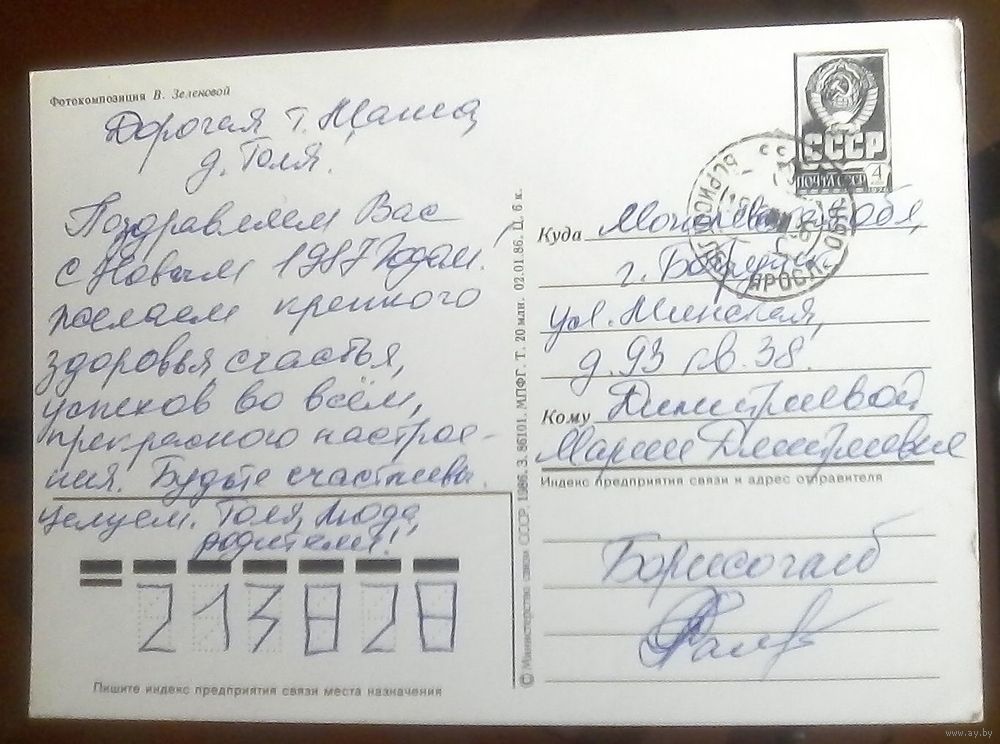 Фотокомпозиция В. Зеленовой
Дорогая т. Маша,
д. Толя.
Поздравляем Вас
с Новым 1987 годом!
желаем крепкого
здоровья счастья,
успехов во всём,
прекрасного настрое-
ния. Будьте счастливы.
целуем. Толя, Люда,
родители!
213828
Пишите индекс предприятия связи места назначения
© Министерство связи СССР, 1986. З. 86101. МПФГ. Т. 20 млн. 02.01.86. Ц. 6 к.
СССР
ПОЧТА СССР
4
Куда Могилевская обл,
г. Бобруйск
ул. Минская,
д. 93 кв. 38.
Кому Димитриевой
Марии Дмитриевне
Индекс предприятия связи и адрес отправителя
Борисоглеб
www.ay.by